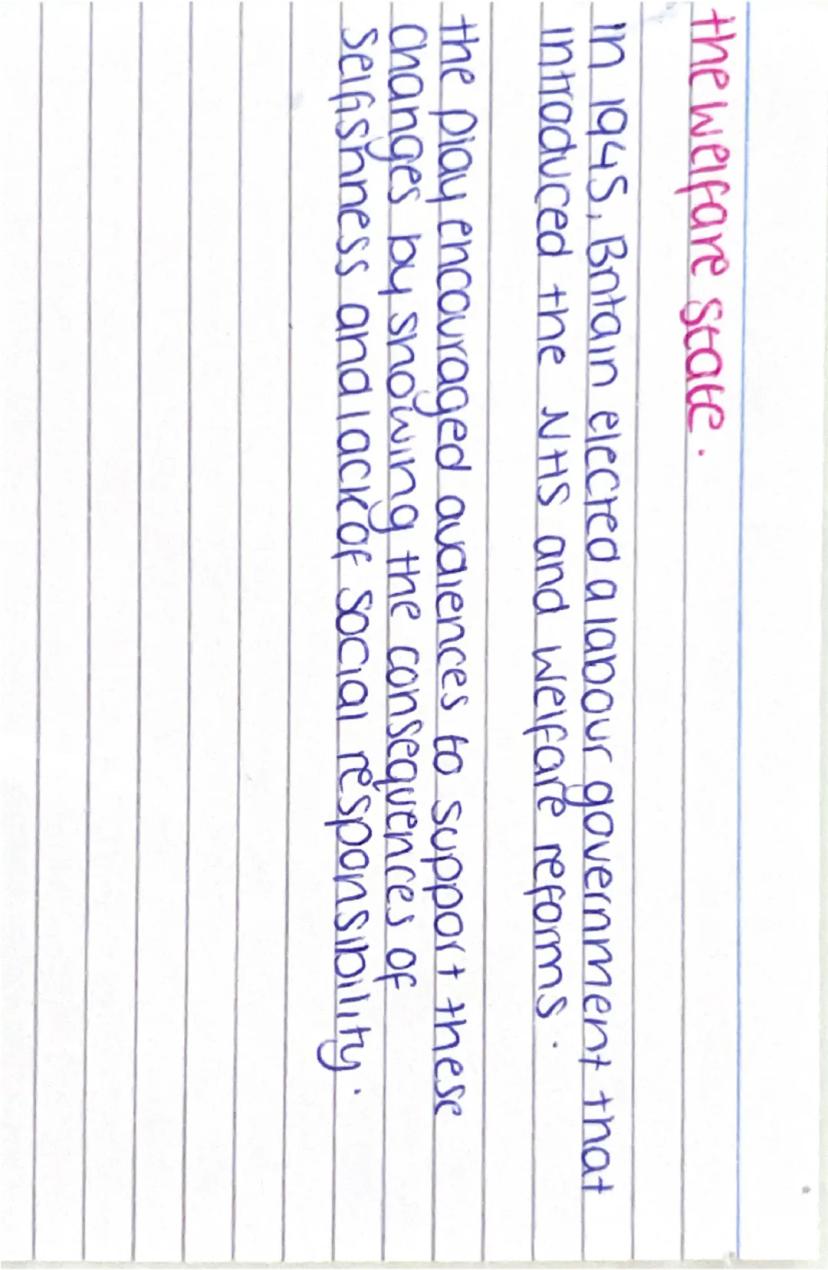 the welfare state.
in 1945, Britain elected a labour government that
introduced the NHS and welfare reforms.
the play encouraged audiences to support these
changes by showing the consequences of
selfishness and lack of social responsibility.